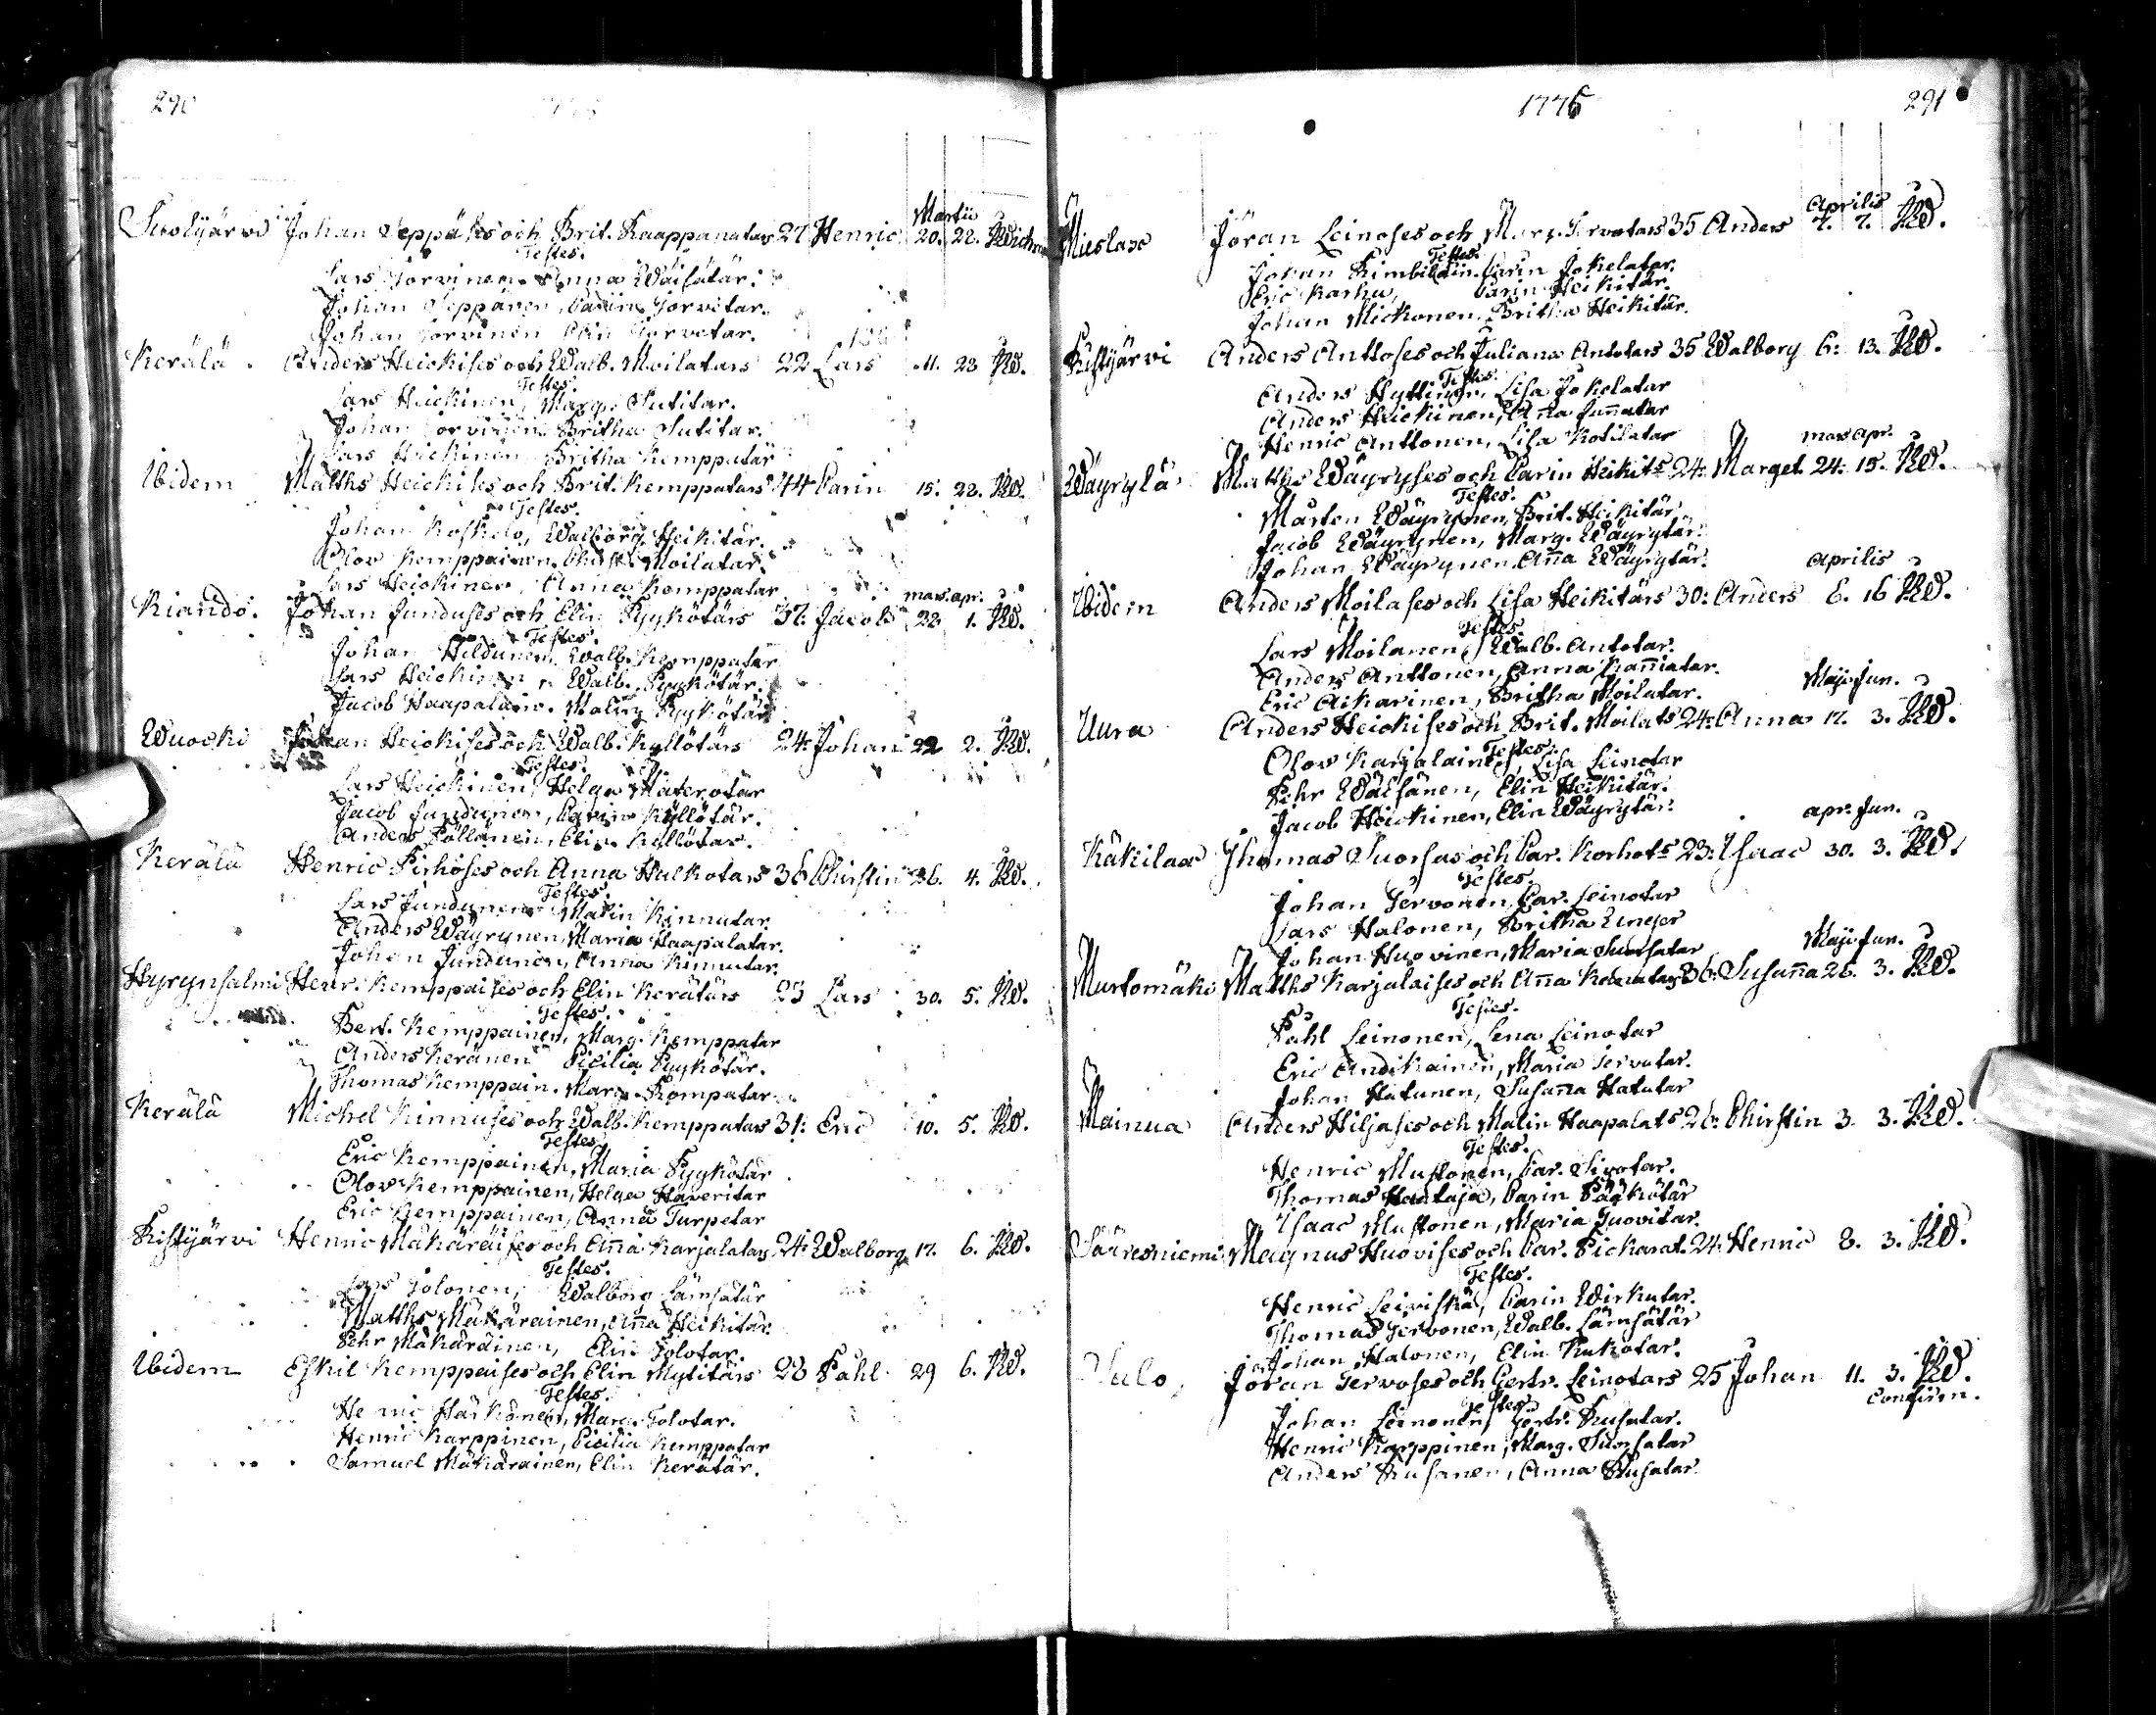 290
Martii
Suolijärvi Johan Seppäses och Brit. Kaappanatar 27 Henric 20. 22. KWichm
Testes.
Lars Torvinen. Anna Wäisätär.
Johan Seppänen, Carin Torvitar.
Johan Torvinen Elin Torvetar.
Kerälä. Anders Heickises och Walb. Moilatars 22 Lars 11. 23 KW.
Testes.
Lars Heickinen, Marg. Sutitar.
Johan Torvinen. Britha Sutitar.
Lars Heickinen Britha Kemppatar
Ibidem Matths Heickises och Brit. Kemppatars 44 Carin 15. 22. KW.
Testes.
Johan Koskelo, Walborg Heikitär.
Olov Kemppainen. Christ. Moilatar.
Lars Heickinen, Anna Kemppatar
mars. apr.
Kiando. Johan Junduses och Elin Pyykötärs 37. Jacob 22 1. KW.
Testes.
Johan Hildunen, Walb. Kemppatar
Lars Heickinen, Walb. Pyykötär.
Jacob Haapalain. Malin Pyykötär
Wuocki Johan Heickises och Walb. Kyllötärs 24: Johan 22 2. KW.
Testes.
Lars Heickinen, Helga Materotar
Jacob Jundunen, Carin Kyllötär.
Anders Pöllänen, Elin Kyllötar.
Kerälä Henric Pirhoses och Anna Hulkotars 36 Chirstin 26. 4. KW.
Testes.
Lars Jundunen Malin Kinnutar.
Anders Wäyrynen, Maria Haapalatar.
Johan Jundunen, Anna Kinnutar.
Hyrynsalmi Henr. Kemppaises och Elin Kerätärs 23 Lars 30. 5. KW.
Testes.
Bert. Kemppainen, Marg. Kemppatar
Anders Keränen Cicilia Pyykötär.
Thomas Kemppain. Marg. Kompatar
Kerälä Michel Kinnuses och Walb. Kemppatars 31: Eric 10. 5. KW.
Testes
Eric Kemppainen, Maria Pyykötär
Olov Kemppainen, Helga Haveritar
Eric Kemppainen, Anna Turpetar
Ristijärvi Henric Mäkäräises och Anna Karjalatars 24: Walborg 17. 6. KW.
Testes.
Lars Tolonen, Walborg Lämsätär
Matths Mäkäräinen, Anna Heikitär.
Pehr Mäkäräinen, Elin Tolotar.
Ibidem Eskil Kemppaises och Elin Mylitärs 23 Påhl 29 6. KW.
Testes.
Henric Härkönen, Marg. Tolotar.
Henric Karppinen, Cicilia Kemppatar
Samuel Mäkäräinen, Elin Kerätär.
1775 291
Aprilis
Mieslax Jöran Leinoses och Marg. Tervotars 35 Anders 7. 7. KW.
Testes.
Johan Kimbiläin. Carin Jokelatar.
Eric Karhu, Carin Heikitär.
Johan Mickonen. Britha Heikitär.
Ristijärvi Anders Anttoses och Juliana Antotars 35 Walborg 6: 13. KW.
Testes.
Anders Hyttinen. Lisa Jokelatar
Anders Heickinen, Anna Junnatar
Henric Anttonen, Lisa Kotilatar
mars apr.
Wäyrylä Matths Wäyryses och Carin Heikits 24: Marget 24: 15. KW.
Testes.
Mårten Wäyrynen, Brit. Heikitär
Jacob Wäyrynen, Marg. Wäyrytär.
Johan Wäyrynen. Anna Wäyrytär.
Aprilis
Ibidem Anders Moilases och Lisa Heikitärs 30: Anders 6. 16 KW.
Testes.
Lars Moilanen, Walb. Antotar.
Anders Anttonen, Anna Kanniatar.
Eric Aikarinen, Britha Moilatar.
Maji. Jun.
Uura Anders Heickises och Brit. Moilats 24: Anna 17. 3. KW.
Testes.
Olov Karjalainen, Lisa Leinotar
Pehr Wäisänen, Elin Heikitär.
Jacob Heickinen, Elin Wäyrytär.
apr. Jun.
Käkilax Thomas Suorsas och Car. Korhots 23: Isaac 30. 3. KW.
Testes.
Johan Tervonen, Car. Leinotar
Lars Halonen, Britha Uneger
Johan Huovinen, Maria Suorsatar
Maji. Jun.
Murtomäki Matths Karjalaises och Anna Komutars 36: Susanna 26. 3. KW.
Testes.
Påhl Leinonen, Lena Leinotar
Eric Andikainen, Maria Tervotar.
Johan Hatunen, Susanna Hatutar
Mainua Anders Hiljases och Malin Haapalats 26: Chirstin 3. 3. KW.
Testes.
Henric Mustonen, Car. Sivotar.
Thomas Hautaja, Carin Pääkötär
Isaac Mustonen, Maria Juovitar.
Säresniemi Magnus Huovises och Car. Pickarat. 24: Henric 8. 3. KW.
Testes.
Henric Leiviskä, Carin Wirkutar.
Thomas Tervonen, Walb. Lämsätär
Johan Halonen, Elin Kukotar.
Salo, Jöran Tervoses och Gertr. Leinotars 25 Johan 11. 3. KW.
Testes. confirm.
Johan Leinonen, Gertr. Rusatar.
Henric Karppinen, Marg. Suorsatar
Anders Rusanen, Anna Rusatar.